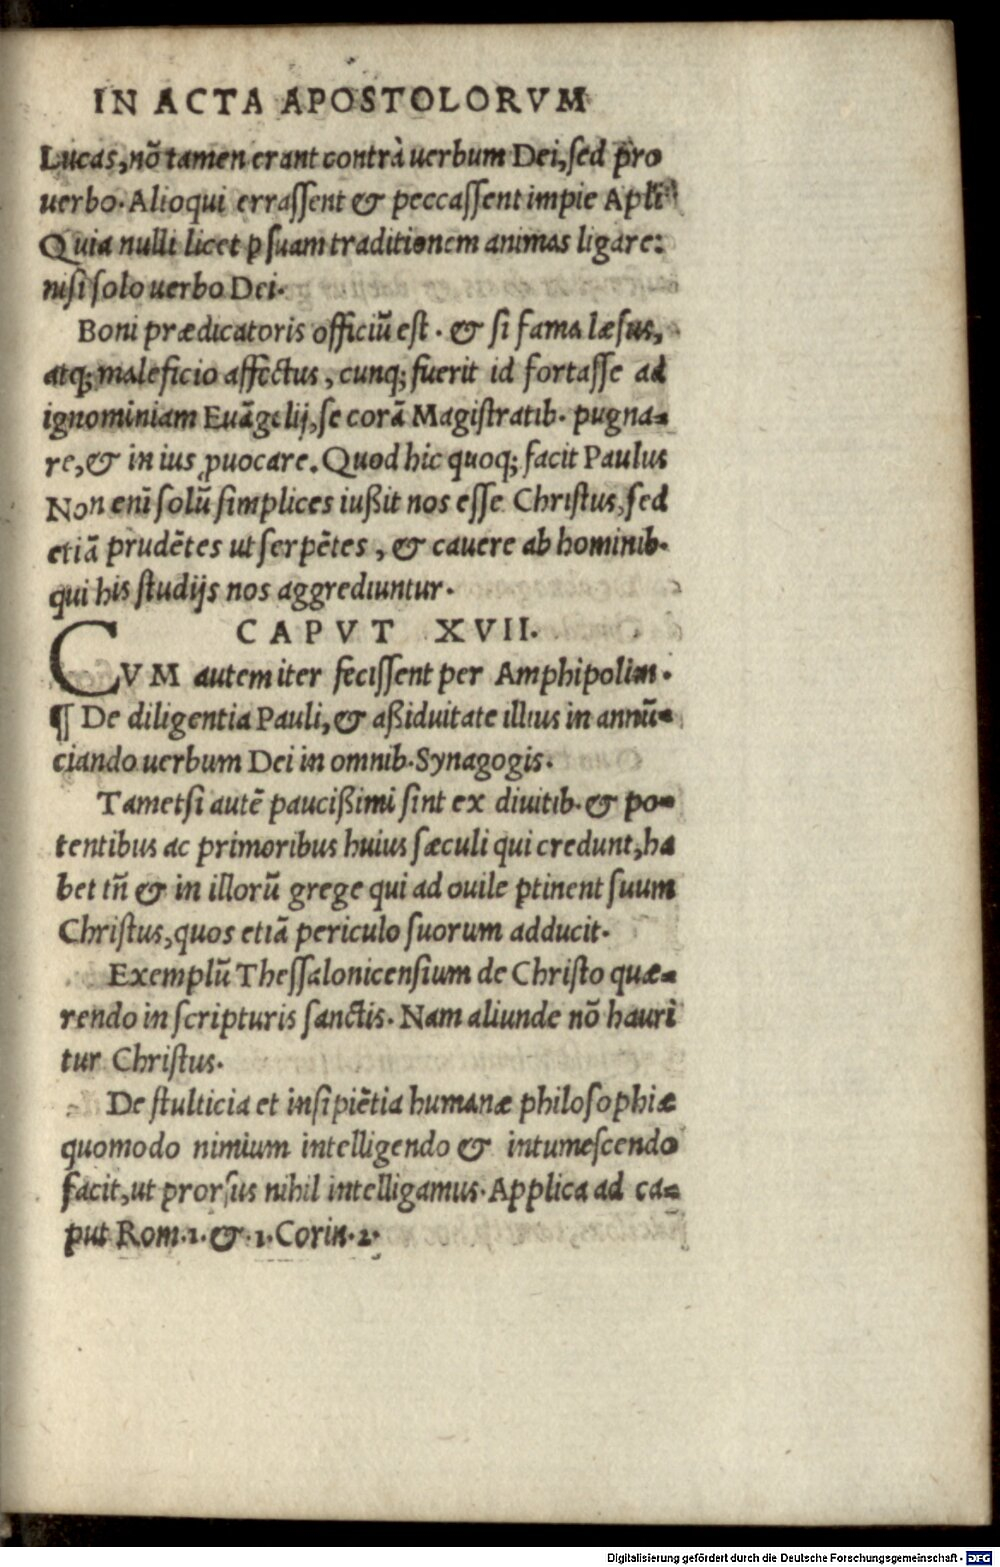 IN ACTA APOSTOLORVM
Lucas, nõ tamen erant contrà uerbum Dei, ſed pro
uerbo. Alioqui erraſſent & peccaſſent impie Apl̃i
Quia nulli licet ꝑ ſuam traditionem animas ligare:
niſi ſolo uerbo Dei.
Boni prædicatoris officiũ eſt. & ſi fama læſus,
atq; maleficio affectus, cunq; fuerit id fortaſſe ad
ignominiam Euãgelij, ſe corã Magiſtratib. pugna-
re, & in ius ꝓuocare. Quod hic quoq; facit Paulus
Non enĩ ſolũ ſimplices iußit nos eſſe Chriſtus, ſed
etiã prudẽtes ut ſerpẽtes, & cauere ab hominib.
qui his ſtudijs nos aggrediuntur.
CAPVT XVII.
CVM autem iter feciſſent per Amphipolim.
¶ De diligentia Pauli, & aßiduitate illius in annũ-
ciando uerbum Dei in omnib. Synagogis.
Tametſi autẽ paucißimi ſint ex diuitib. & po-
tentibus ac primoribus huius ſæculi qui credunt, ha
bet tñ & in illorũ grege qui ad ouile ꝑtinent ſuum
Chriſtus, quos etiã periculo ſuorum adducit.
Exemplũ Theſſalonicenſium de Chriſto quæ-
rendo in ſcripturis ſanctis. Nam aliunde nõ hauri
tur Chriſtus.
De ſtulticia et inſipiẽtia humanæ philoſophiæ
quomodo nimium intelligendo & intumeſcendo
facit, ut prorſus nihil intelligamus. Applica ad ca-
put Rom. 1. & . 1. Corin. 2.
Digitalisierung gefördert durch die Deutsche Forschungsgemeinschaft - DFG